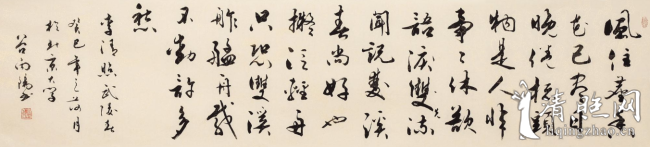 風住塵香
花已盡日
晚倦梳頭
物是人非
事〻休欲
語淚雙流
聞說雙溪
春尚好也
擬泛輕舟
只恐雙溪
舴艋舟載
不動許多
愁
李清照武陵春
癸巳年之荷月
於北京大学
谷向陽書